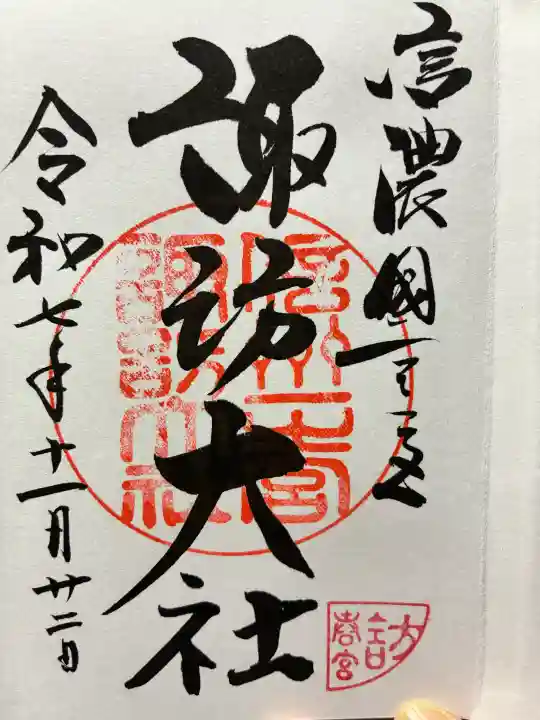 信濃國一之宮
諏訪大社
令和七年十一月廿三日
信州一宮
諏訪大社
諏訪
春宮